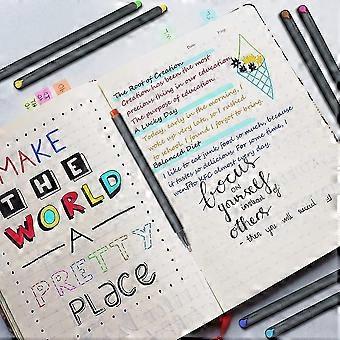 MAKE
THE
WORLD
A
PRETTY
PLACE
Date
Page
The Root of Creation
Creation has been the most
precious thing in our education
The purpose of education.
A Lucky Day
Today, early in the morning, I
woke up very late, so I rushed
to school I found I forgot to bring.
Balanced Diet
I like to eat junk food so much, because
it tastes so delicious. For some time,
I went to KFC almost every day.
focus
on
yourself
instead of
others
then you will succeed